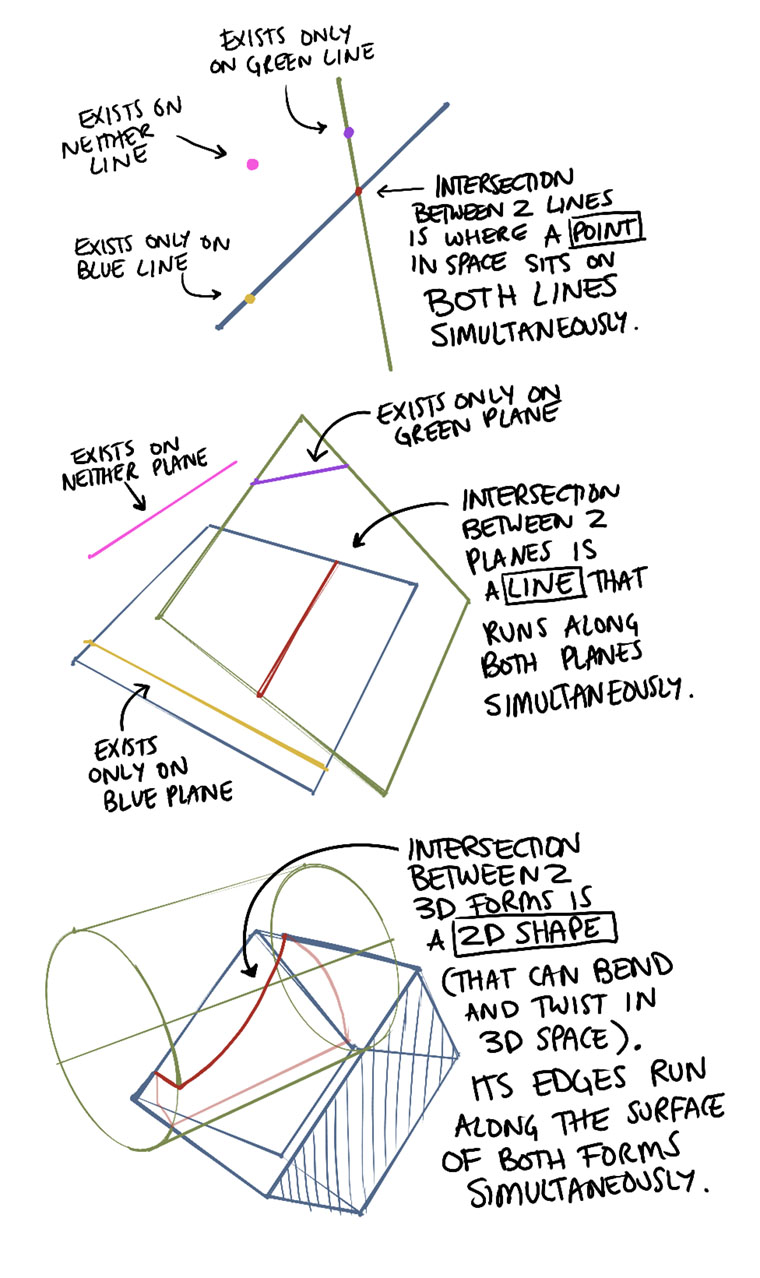 EXISTS ONLY
ON GREEN LINE
EXISTS ON
NEITHER
LINE
INTERSECTION
BETWEEN 2 LINES
IS WHERE A POINT
IN SPACE SITS ON
BOTH LINES
SIMULTANEOUSLY.
EXISTS ONLY ON
BLUE LINE
EXISTS ONLY ON
GREEN PLANE
EXISTS ON
NEITHER PLANE
INTERSECTION
BETWEEN 2
PLANES IS
A LINE THAT
RUNS ALONG
BOTH PLANES
SIMULTANEOUSLY.
EXISTS
ONLY ON
BLUE PLANE
INTERSECTION
BETWEEN 2
3D FORMS IS
A 2D SHAPE
(THAT CAN BEND
AND TWIST IN
3D SPACE).
ITS EDGES RUN
ALONG THE SURFACE
OF BOTH FORMS
SIMULTANEOUSLY.